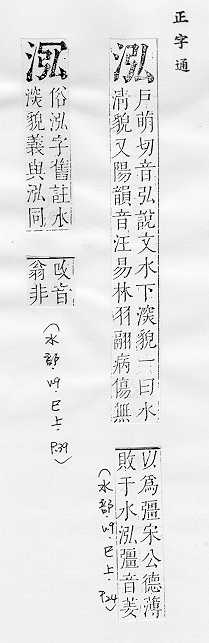 正字通
泓
戶萌切音弘說文水下深貌一曰水
清貌又陽韻音汪易林羽翮病傷無
以為彊宋公德薄
敗于水泓彊音姜
（水部.V9.巳上.P.24）
俗泓字舊註水
深貌義與泓同
改音
翁非
（水部.V9.巳上.P.39）